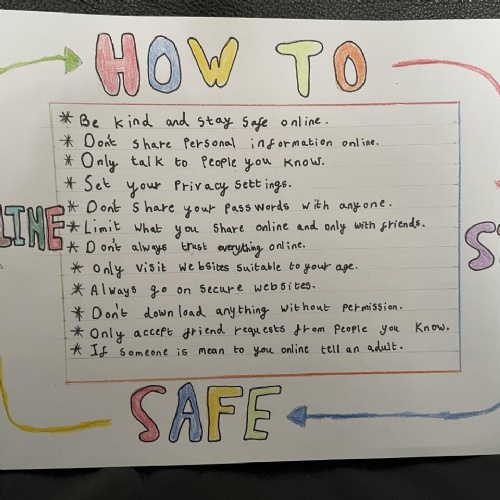 HOW TO
* Be kind and stay safe online.
* Don't share personal information online.
* Only talk to people you know.
* Set your privacy settings.
* Don't share your passwords with anyone.
* Limit what you share online and only with friends.
* Don't always trust everything online.
* Only visit websites suitable to your age.
* Always go on secure websites.
* Don't download anything without permission.
* Only accept friend requests from people you know.
* If someone is mean to you online tell an adult.
LINE
SAFE